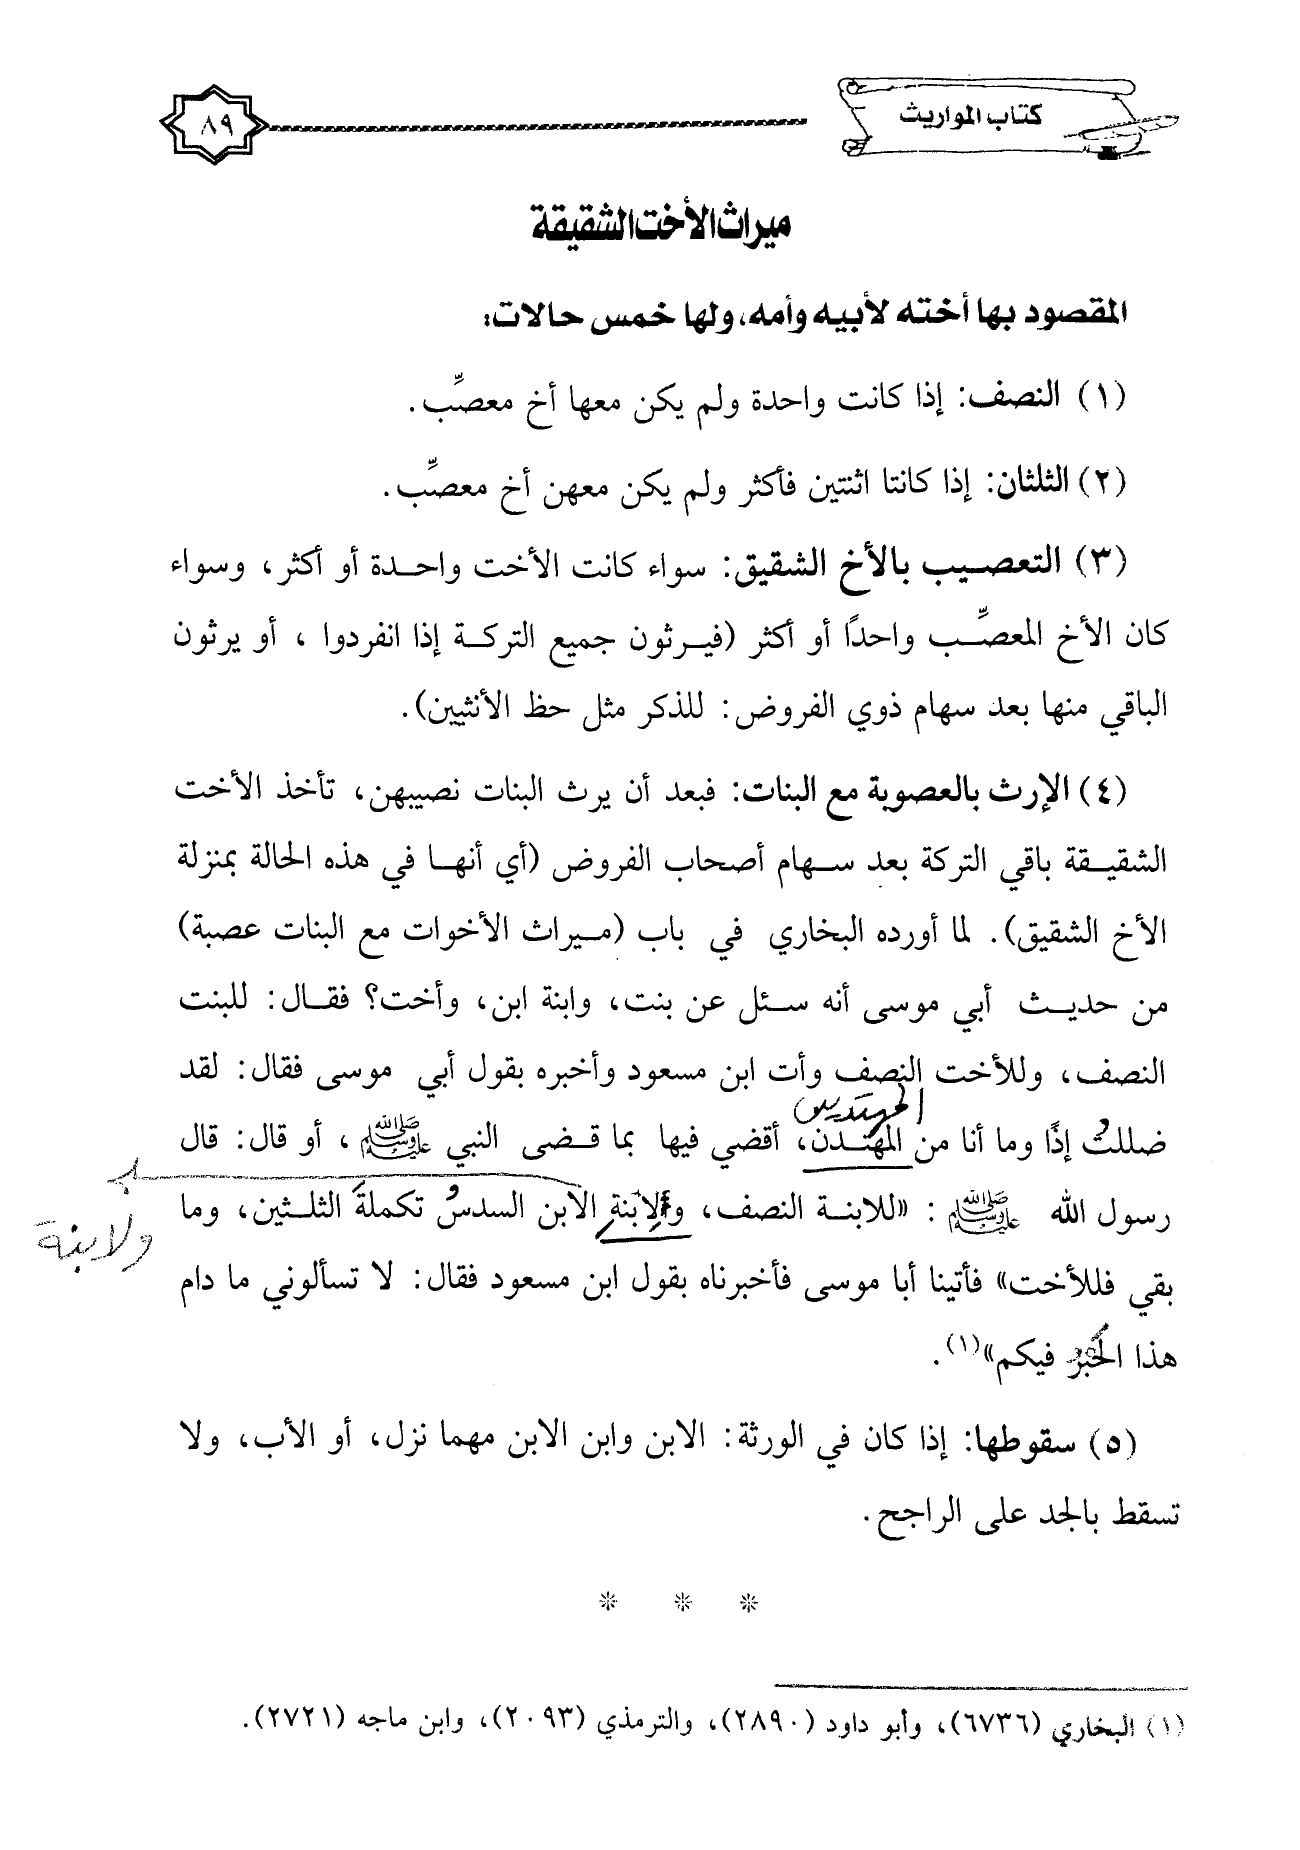 كتاب المواريث
٨٩
ميراث الأخت الشقيقة
المقصود بها أخته لأبيه وأمه، ولها خمس حالات:
(١) النصف: إذا كانت واحدة ولم يكن معها أخ معصِّب.
(٢) الثلثان: إذا كانتا اثنتين فأكثر ولم يكن معهن أخ معصِّب.
(٣) التعصيب بالأخ الشقيق: سواء كانت الأخت واحدة أو أكثر، وسواء
كان الأخ المعصِّب واحدًا أو أكثر (فيرثون جميع التركة إذا انفردوا ، أو يرثون
الباقي منها بعد سهام ذوي الفروض: للذكر مثل حظ الأنثيين).
(٤) الإرث بالعصوبة مع البنات: فبعد أن يرث البنات نصيبهن، تأخذ الأخت
الشقيقة باقي التركة بعد سهام أصحاب الفروض (أي أنها في هذه الحالة بمنزلة
الأخ الشقيق). لما أورده البخاري في باب (ميراث الأخوات مع البنات عصبة)
من حديث أبي موسى أنه سئل عن بنت، وابنة ابن، وأخت؟ فقال: للبنت
النصف، وللأخت النصف وأت ابن مسعود وأخبره بقول أبي موسى فقال: لقد
المهتدين
ضللتُ إذًا وما أنا من المهتدن، أقضي فيها بما قضى النبي ﷺ، أو قال: قال
رسول الله ﷺ: «للابنة النصف، والابنة الابن السدسُ تكملةَ الثلثين، وما
ولابنة
بقي فللأخت» فأتينا أبا موسى فأخبرناه بقول ابن مسعود فقال: لا تسألوني ما دام
هذا الحَبْر فيكم»(١).
(٥) سقوطها: إذا كان في الورثة: الابن وابن الابن مهما نزل، أو الأب، ولا
تسقط بالجد على الراجح.
* * *
(١) البخاري (٦٧٣٦)، وأبو داود (٢٨٩٠)، والترمذي (٢٠٩٣)، وابن ماجه (٢٧٢١).